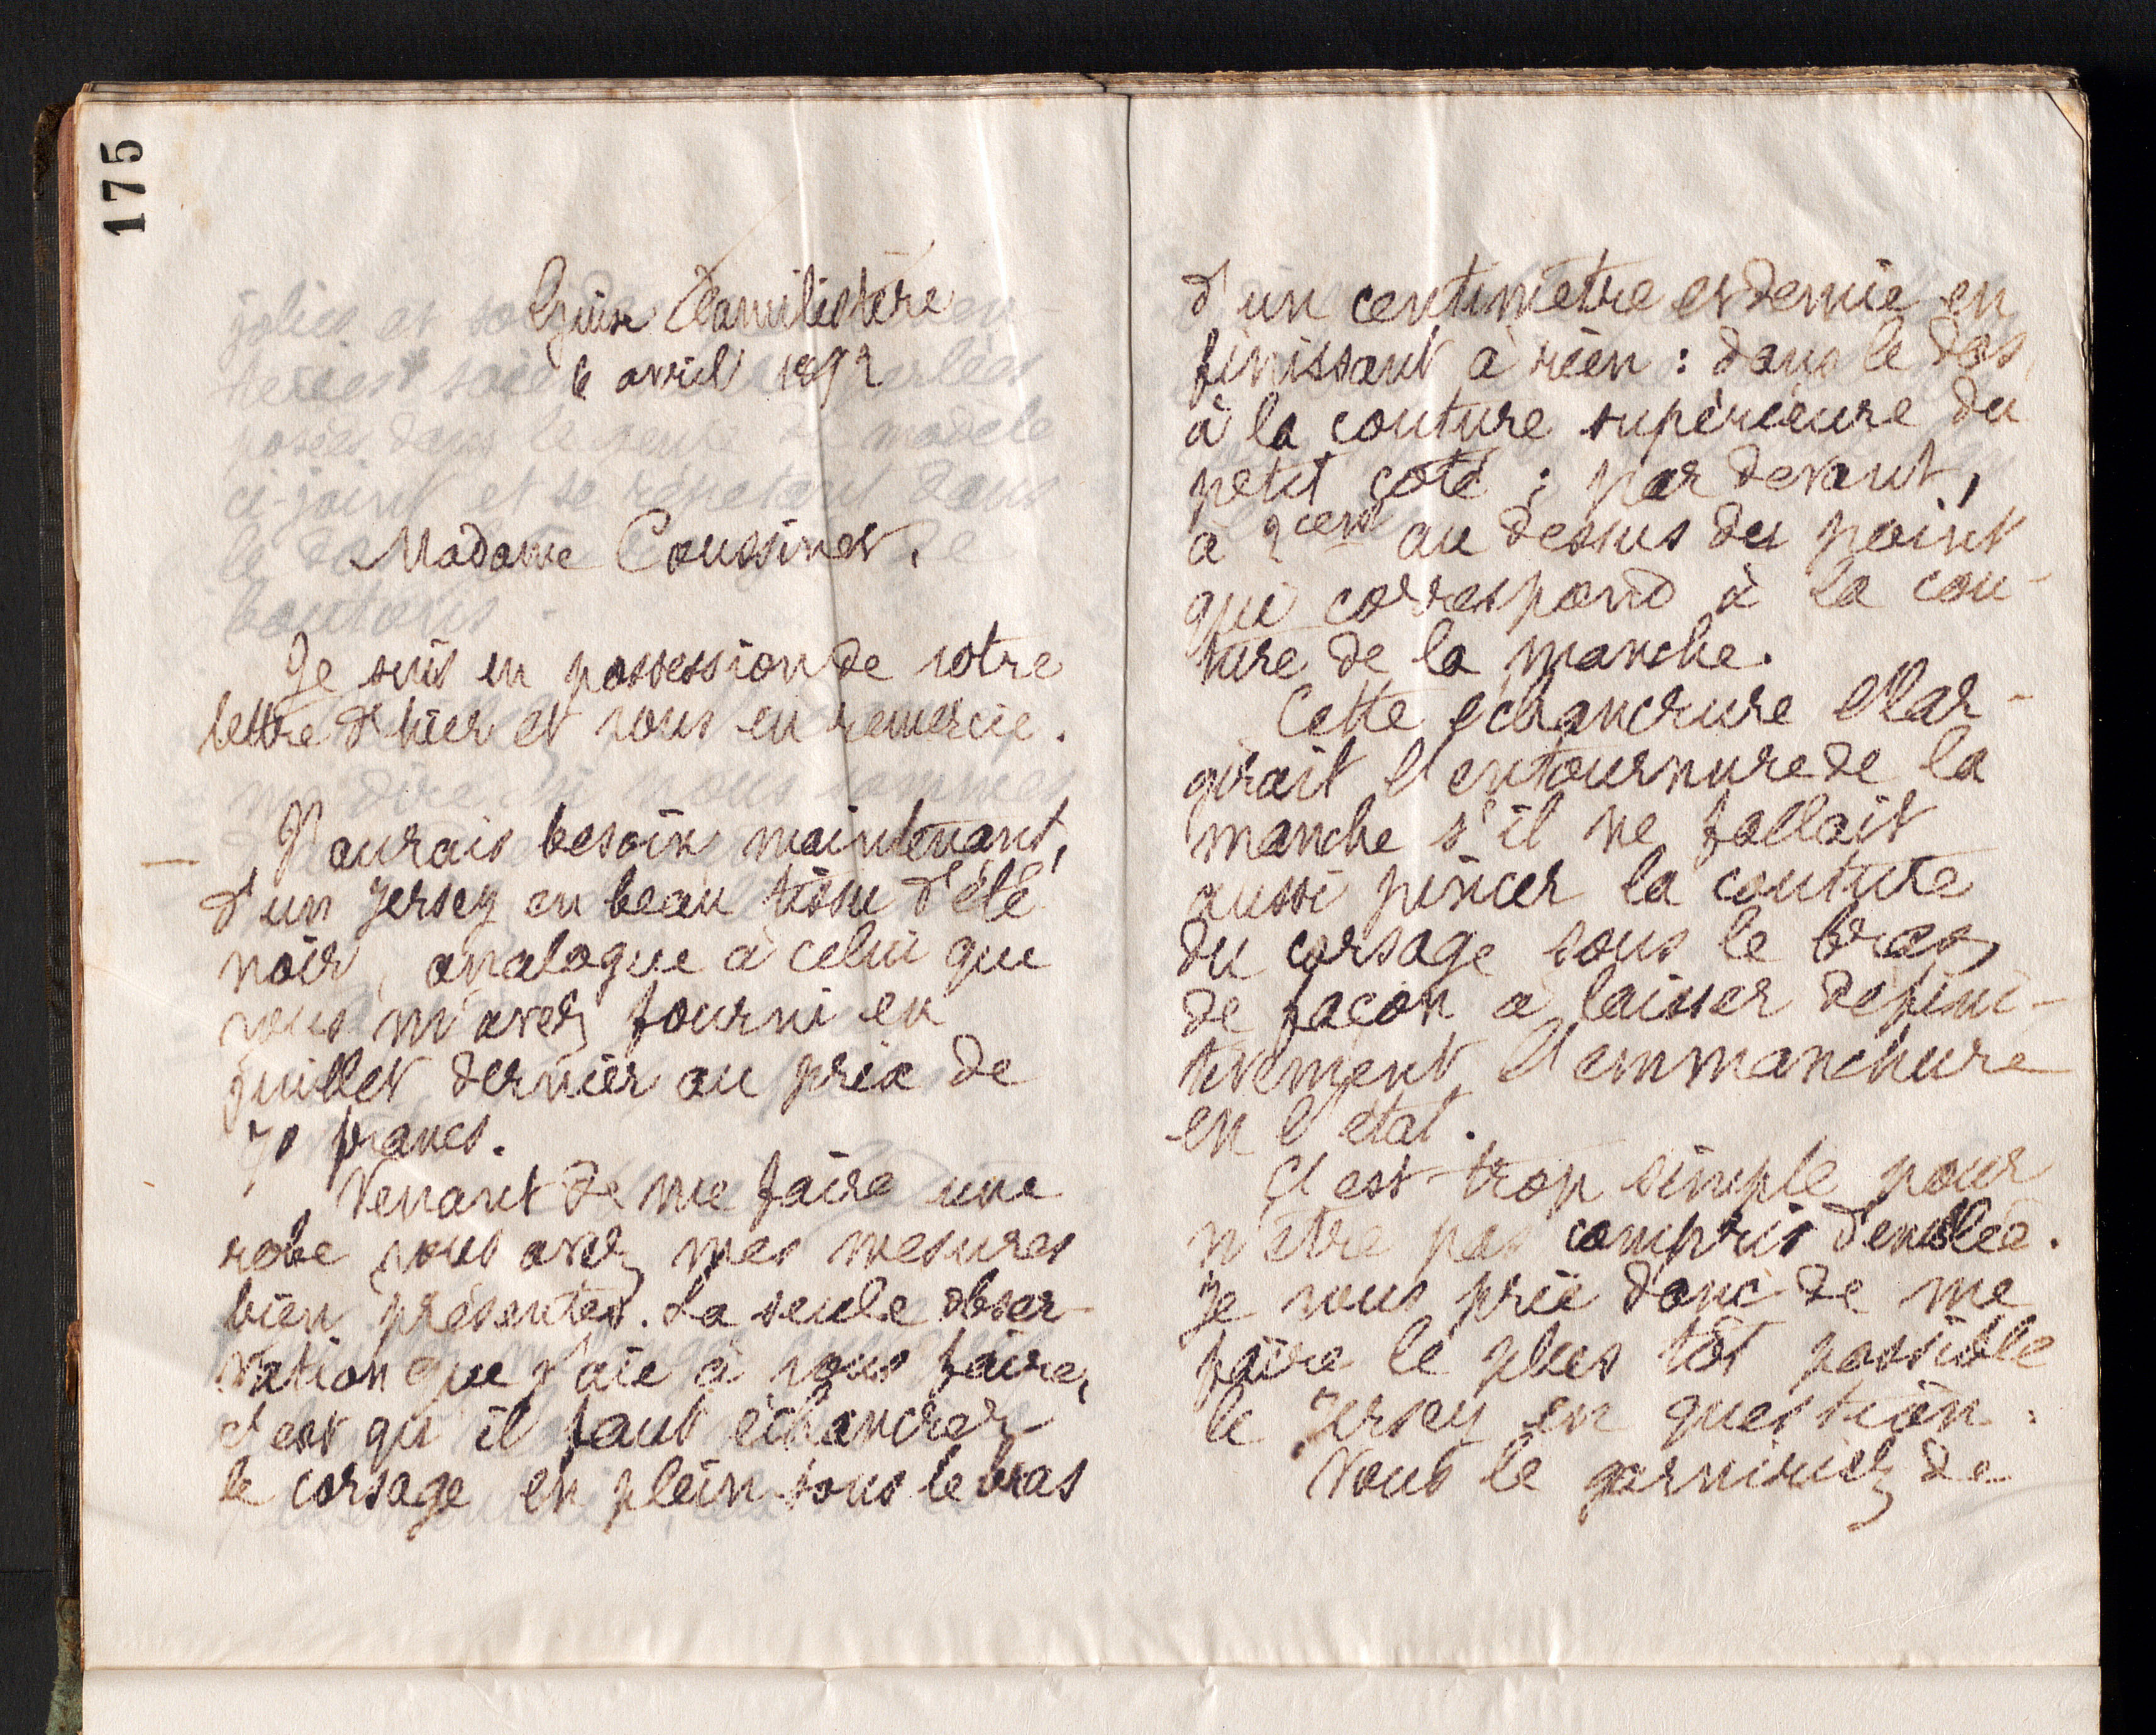 175
Guise Familistère
6 avril 1892
Madame Coussinet,
Je suis en possession de votre
lettre d'hier et vous en remercie.
J'aurais besoin maintenant,
d'un Jersey en beau tissu d'été
noir, analogue à celui que
vous m'avez fourni en
juillet dernier au prix de
70 francs.
Venant de me faire une
robe vous avez mes mesures
bien présentes. La seule obser-
vation que j'aie à vous faire,
c'est qu'il faut échancrer
le corsage en plein sous le bras
d'un centimètre et demie en
finissant à rien : dans le dos,
à la couture supérieure du
petit côté ; par devant,
à 2 cent au dessus du point
qui correspond à la cou-
ture de la manche.
Cette échancrure élar-
girait l'entournure de la
manche s'il ne fallait
aussi pincer la couture
du corsage sous le bras,
de façon à laisser défini-
tivement l'emmanchure
en l'état.
C'est trop simple pour
n'être pas compris d'emblée.
Je vous prie donc de me
faire le plus tôt possible
le Jersey en question.
Vous le garniriez de